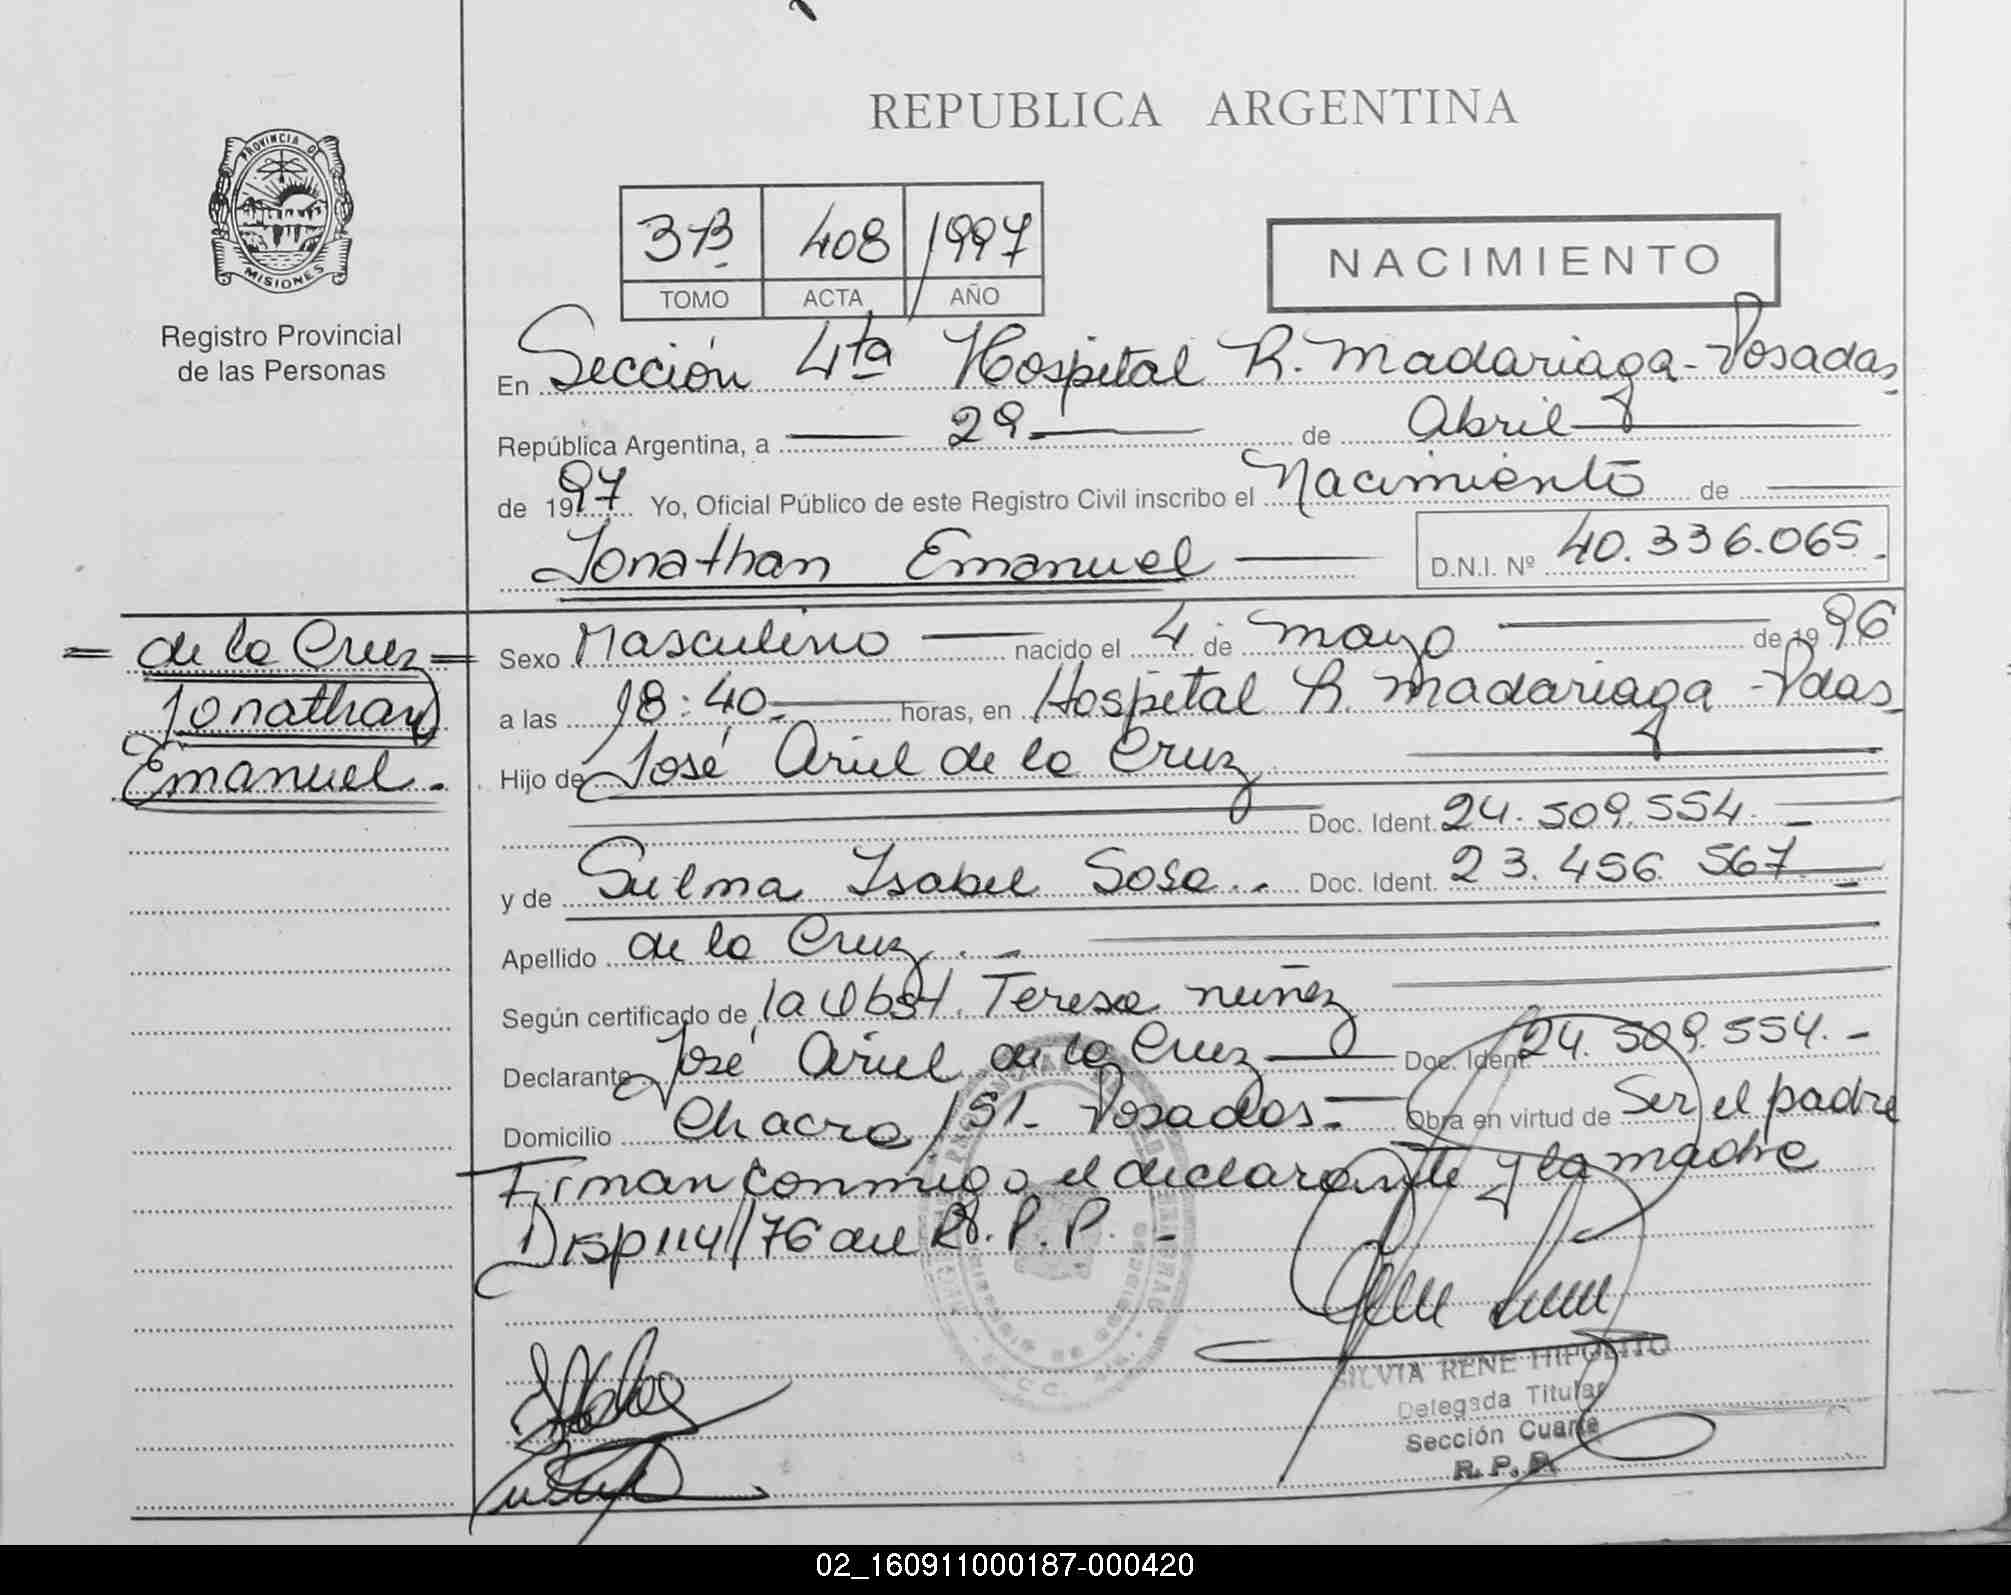 REPUBLICA ARGENTINA
PROVINCIA DE
MISIONES
Registro Provincial
de las Personas
3B 408 1997
TOMO ACTA AÑO
NACIMIENTO
En Sección 4ta Hospital R. Madariaga - Posadas
República Argentina, a 29 de Abril
de 1997 Yo, Oficial Público de este Registro Civil inscribo el Nacimiento de
Jonathan Emanuel D.N.I. Nº 40.336.065.
= de la Cruz =
Jonathan
Emanuel.
Sexo Masculino nacido el 4 de mayo de 1996
a las 18:40 horas, en Hospital R. Madariaga - Pdas
Hijo de José Ariel de la Cruz
Doc. Ident. 24.509.554.
y de Sulma Isabel Sosa.. Doc. Ident. 23.456.567
Apellido de la Cruz . . -
Según certificado de la Obst. Teresa nuñez
Declarante José Ariel de la Cruz Doc. Ident. 24.509.554.-
Domicilio Chacra 151 - Posadas.- Obra en virtud de Ser el padre
Firman conmigo el declarante y la madre
Disp 114/76 del R.P.P. -
SILVIA RENE HIPOLITO
Delegada Titular
Sección Cuarta
R. P. P.
02_160911000187-000420